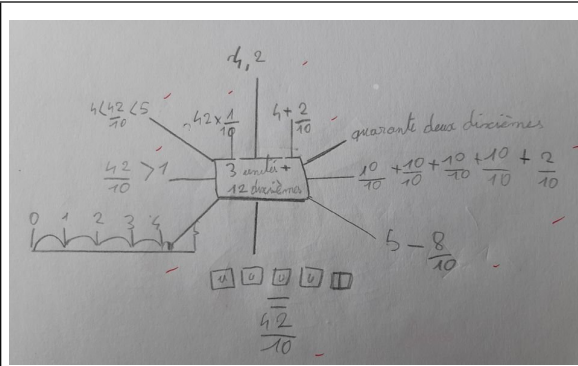 4,2
4 < 42/10 < 5
42 × 1/10
4 + 2/10
quarante deux dixièmes
42/10 > 1
3 unités +
12 dixièmes
10/10 + 10/10 + 10/10 + 10/10 + 2/10
0 1 2 3 4
5 − 8/10
u u u u
=
42/10